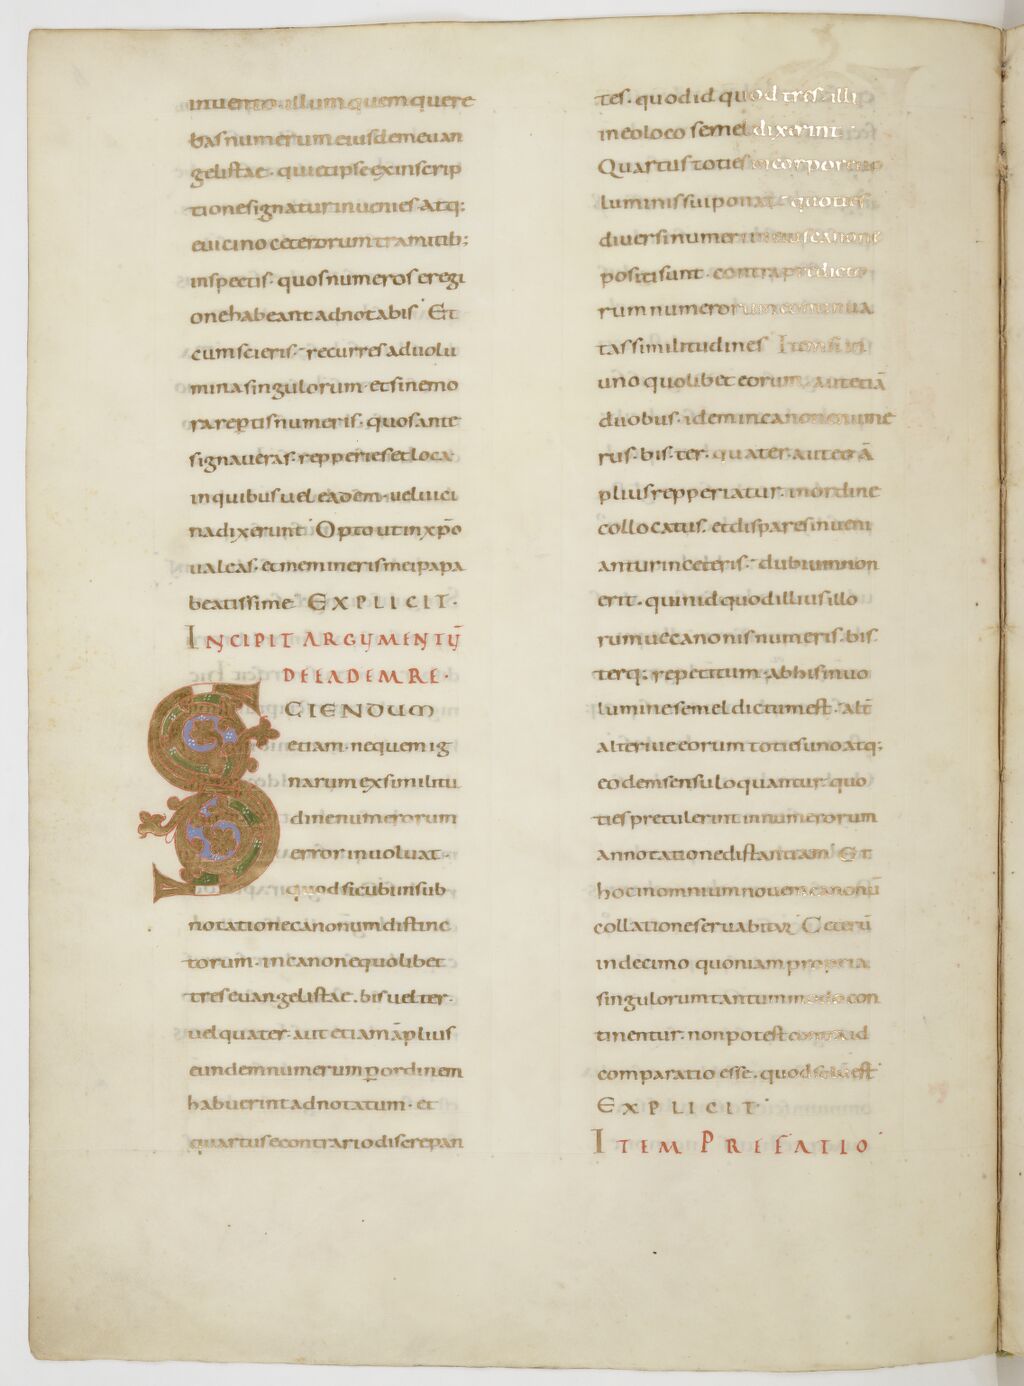 inuento· illum quem quere
bas numerum eiusdem euan
gelistae· qui et ipse ex inscrip
tione signatur inuenies· Atq:
e uicino ceterorum tramitib;
inspectis· quos numeros e regi
one habeant adnotabis· Et
cum scieris· recurres ad uolu
mina singulorum· et sine mo
ra repertis numeris· quos ante
signaueras· repperies et loca
in quibus uel eadem· uel uici
na dixerunt· Opto ut in xp̄o
ualeas· et memineris mei papa
beatissime EXPLICIT·
INCIPIT ARGUMENTŪ
DE EADEM RE·
SCIENDUM
etiam· ne quem ig
narum ex similitu
dine numerorum
error inuoluat·
quod sicubi in sub
notatione canonum distinc
torum· in canone quolibet
tres euangelistae· bis uel ter·
uel quater· aut etiam āplius
eundem numerum ꝑ ordinem
habuerint adnotatum· et
quartus e contrario discrepan
tes· quod id quod tres· illi
in eo loco semel dixerint
Quartus toties in corpore uo
luminis sui ponat· quoties
diuersi numeri in eius canone
positi sunt· contra predicto
rum numerorum continua
tas similitudines Item si in
uno quolibet eorum· aut etiā
duobus· idem in canone nume
rus· bis· ter· quater· aut eo ā
plius repperiatur· in ordine
collocatus· et dispares inueni
antur in ceteris· dubium non
erit· quin id quod illius illo
rumue canonis numeris· bis
terq; repetitum· ab his in uo
lumine semel dictum est· alt̄
alteriue eorum toties uno atq;
eodem sensu loquantur· quo
ties pretulerint in numerorum
annotatione distantiam· Et
hoc in omnium nouem canonū
collatione seruabitur· Ceterū
in decimo quoniam propria
singulorum tantummodo con
tinentur· non potest contra id
comparatio esse· quod solū est·
EXPLICIT·
ITEM PREFATIO·